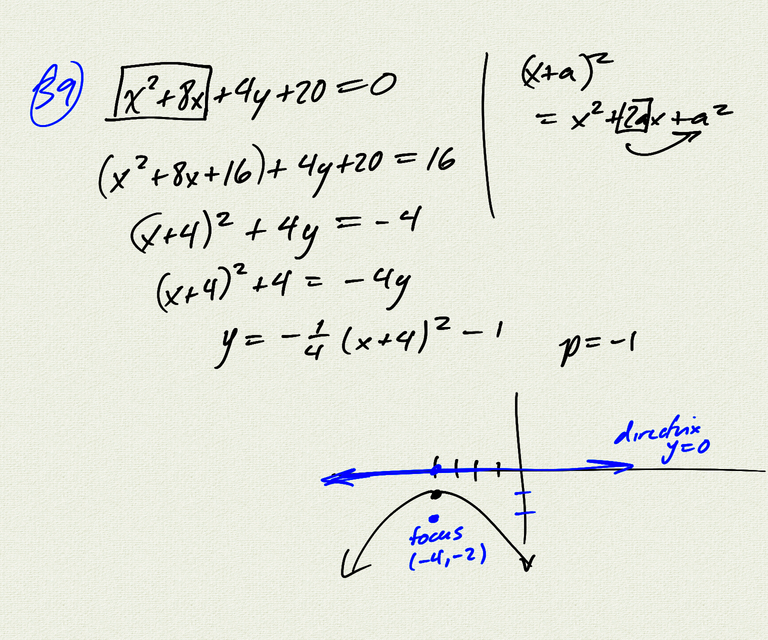 39) x² + 8x + 4y + 20 = 0
(x² + 8x + 16) + 4y + 20 = 16
(x+4)² + 4y = -4
(x+4)² + 4 = -4y
y = -1/4 (x+4)² - 1
p = -1
(x+a)²
= x² + 2ax + a²
directrix
y=0
focus
(-4,-2)